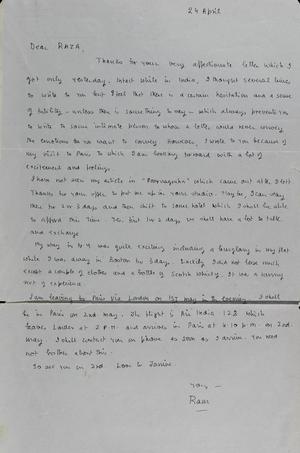 24 April
Dear RAZA,
Thanks for your very affectionate letter which I
got only yesterday. Infact while in India, I thought several time
to write to you but I feel that there is a certain hesitation and a sense
of futility - unless there is something to say - which always prevents one
to write to some intimate person to whom a letter, could never convey
the emotions one want to convey. However, I wrote to you because of
my visit to Paris to which I am looking forward with a lot of
excitement and feeling.
I have not seen my article in " " which came out after I left
Thanks for your offer to put me up in your studio. Maybe, I can stay
there for 2 or 3 days and then shift to some hotel which I shall be able
to afford this time. Yes, first 1 or 2 days we shall have a lot to talk
and exchange
My stay in N.Y was quite exciting including a burglary in my flat
while I was away in Boston for 3 days. Luckily I did not lose much
except a couple of clothes and a bottle of Scotch Whisky. It was a
sort of experience
I am leaving for Paris via London on 1st may in the evening. I shall
be in Paris on 2nd may. The flight is Air India 122 which
leaves London at 2 P.M. and arrives in Paris at 4.10 p.m. on 2nd
may. I shall contact you on phone as soon as I arrive. You need
not bother about this.
So see you on 2nd. Love to Janine.
Yours
Ram